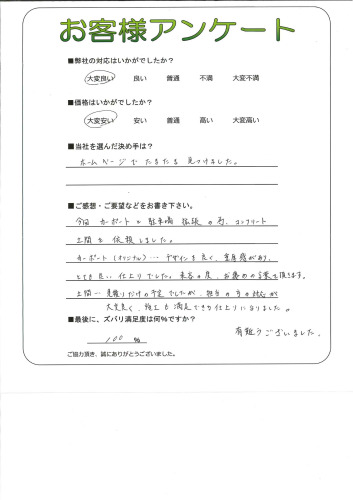 お客様アンケート
■弊社の対応はいかがでしたか?
大変良い 良い 普通 不満 大変不満
■価格はいかがでしたか?
大変安い 安い 普通 高い 大変高い
■当社を選んだ決め手は?
ホームページでたまたま見つけました。
■ご感想・ご要望などをお書き下さい。
今回 カーポートと駐車場 拡張の為、コンクリート
土間を依頼しました。
カーポート(オリジナル)… デザインも良く、重厚感があり、
とても良い仕上りでした。来客の度、お褒めの言葉を頂きます。
土間… 見積りだけの予定でしたが、担当の方の対応が
大変良く、施工も満足できる仕上りになりました。
■最後に、ズバリ満足度は何%ですか?
100 %
有難うございました。
ご協力頂き、誠にありがとうございました。